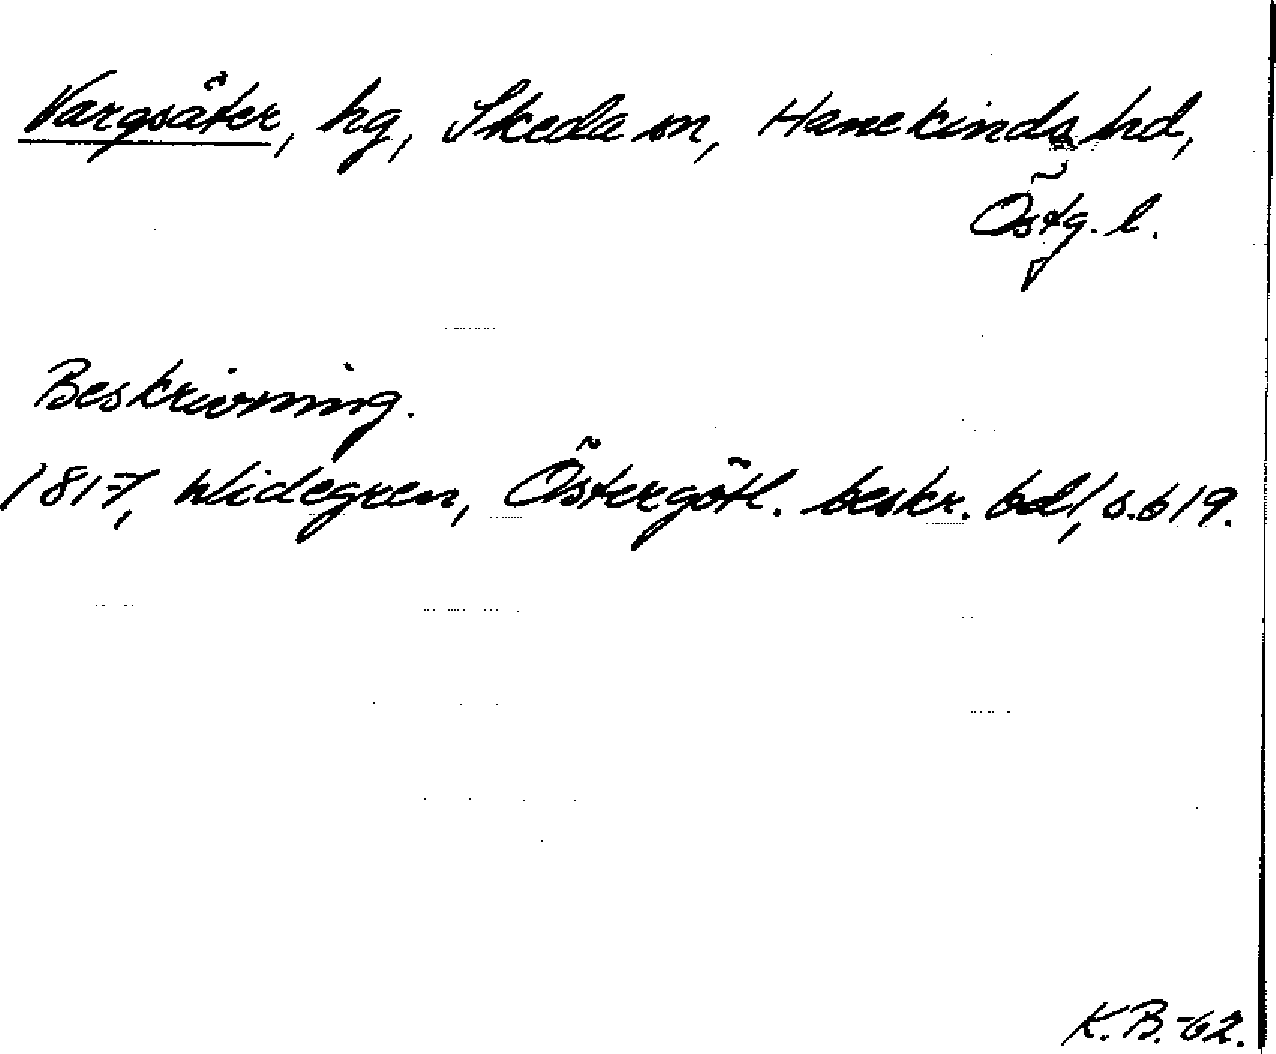 Vargsäter, hg, Skeda sn, Hanekinds hd,
Östg. l.
Beskrivning.
1817, Widegren, Östergötl. beskr. bd 1, s. 619.
K.B.-62.